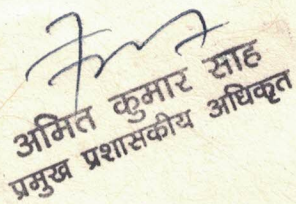 अमित कुमार साह
प्रमुख प्रशासकीय अधिकृत